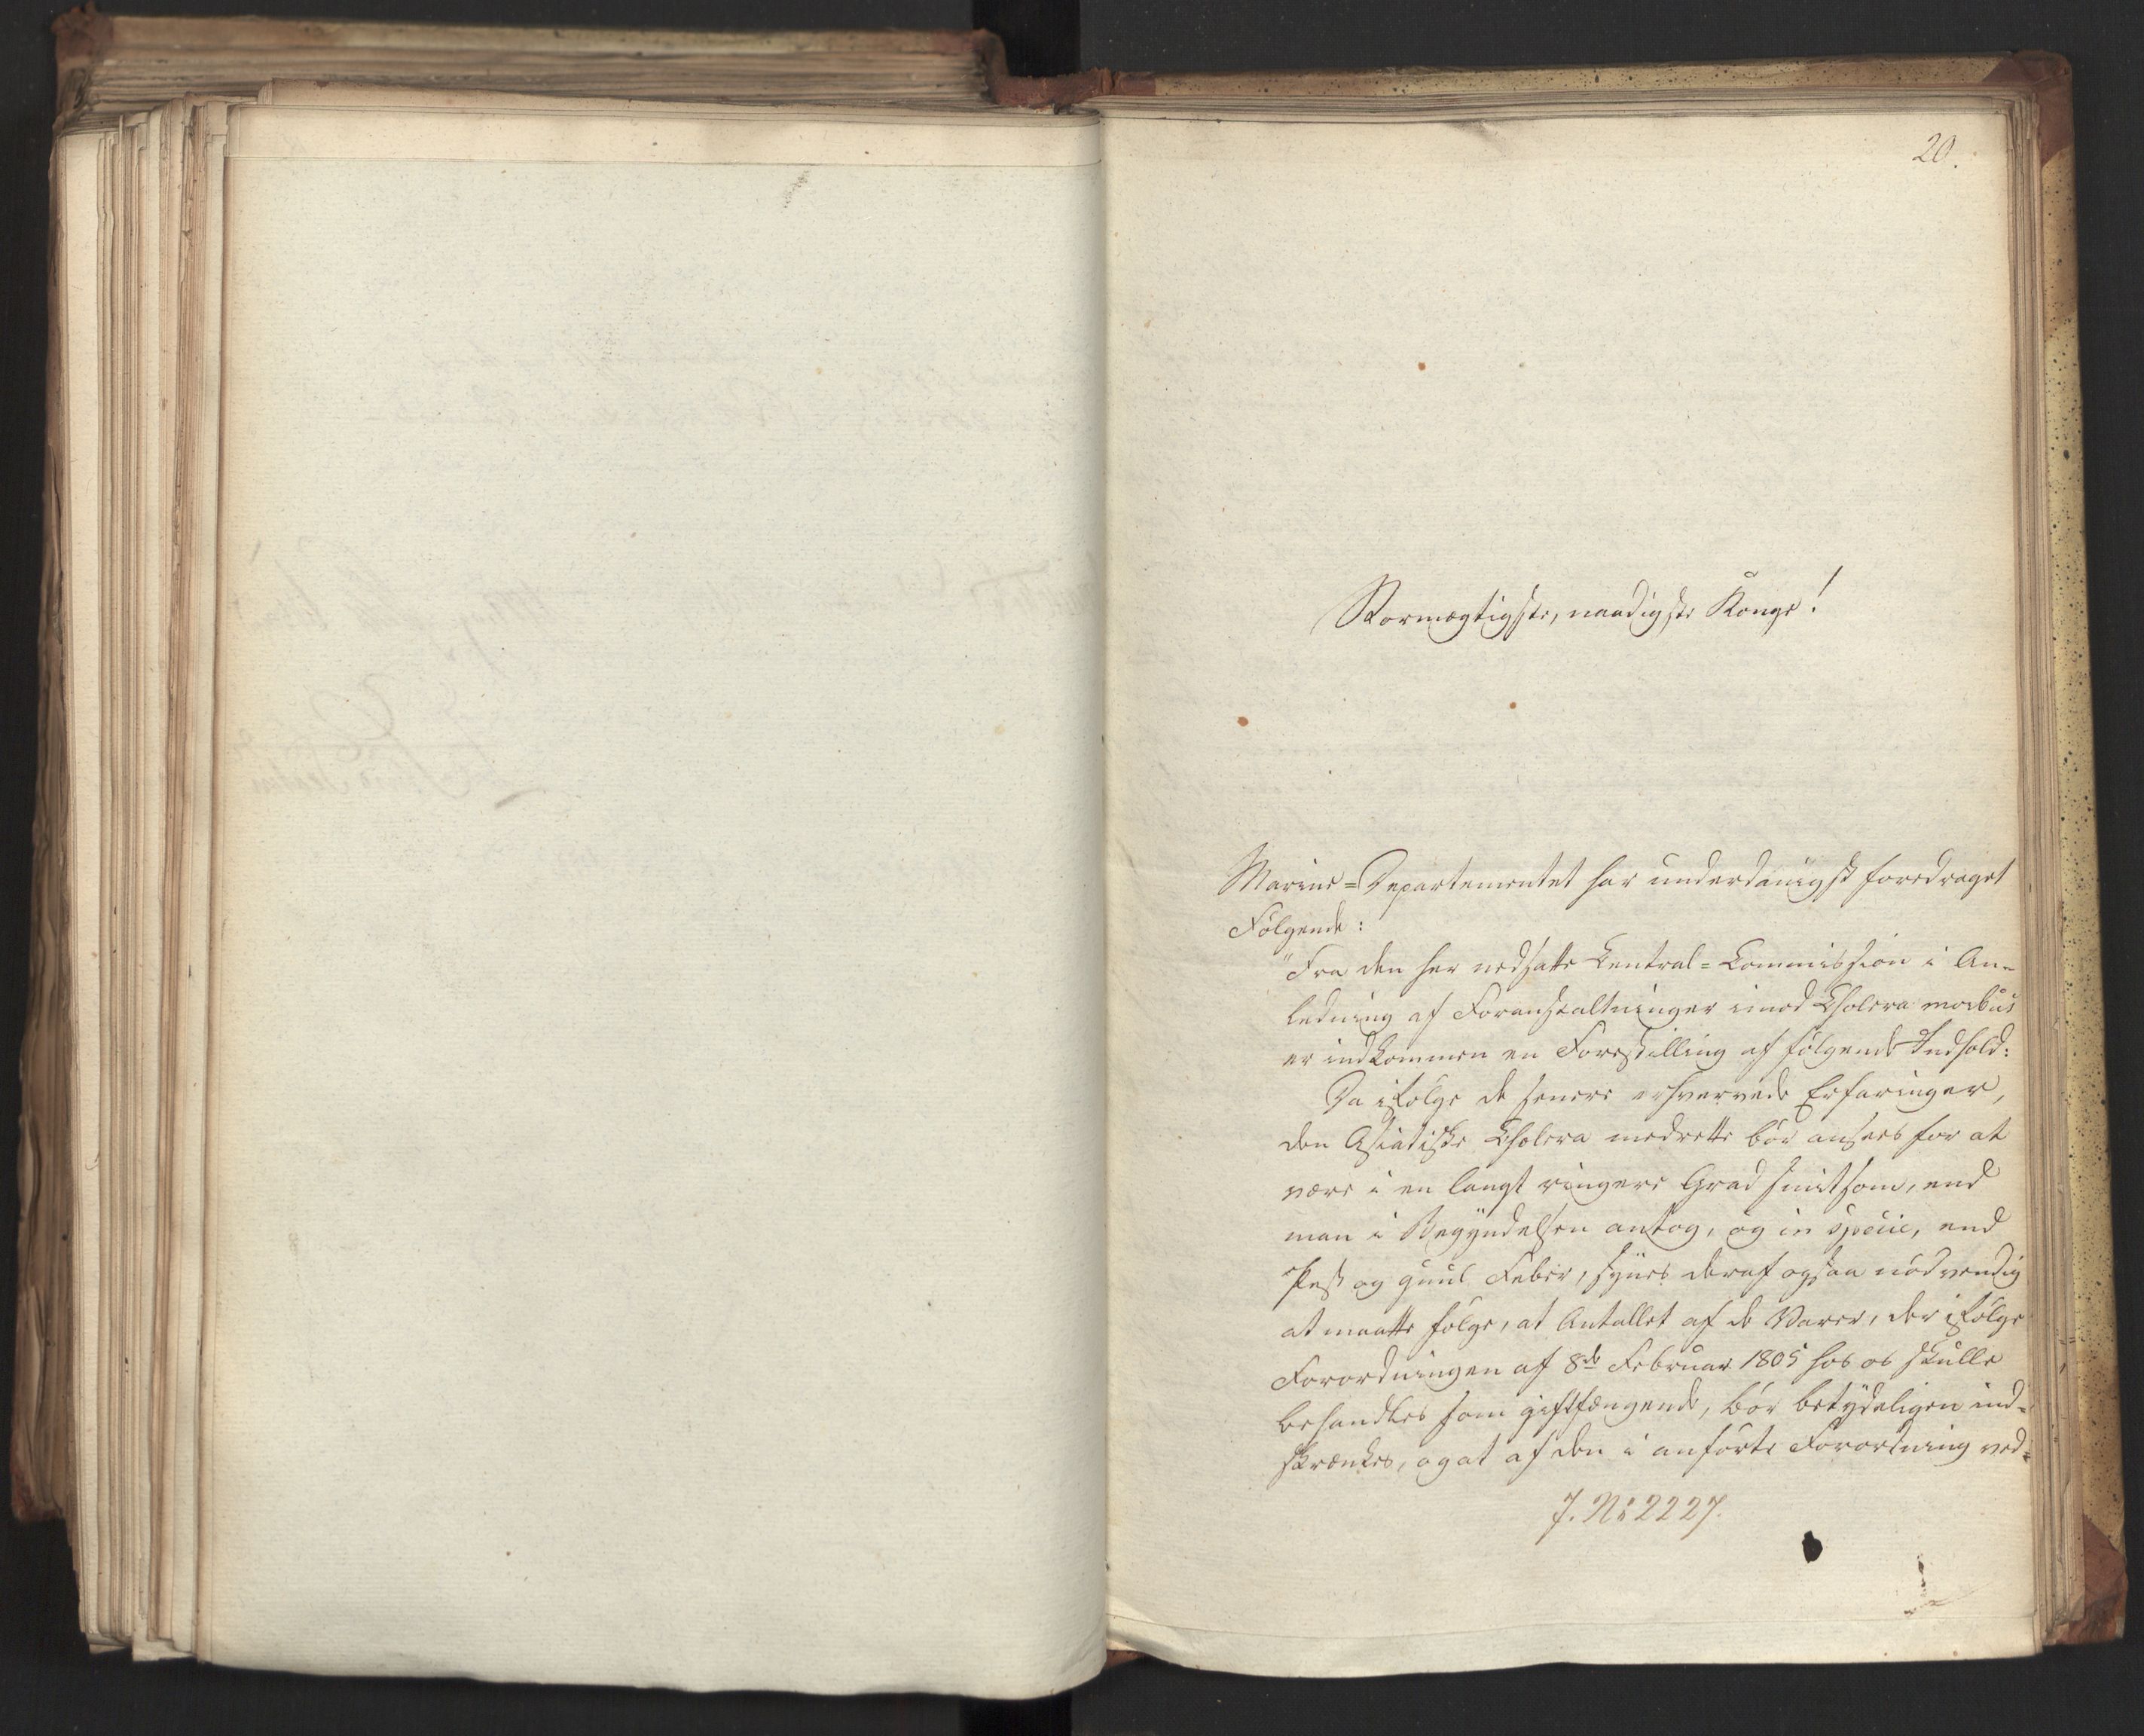 20.
Stormægtigste, naadigste Konge!
Marine=Departementet har underdanigst foredraget
Følgende:
"Fra den her nedsatte Central=Commission i An=
ledning af Foranstaltninger imod Cholera morbus
er indkommen en Forestilling af følgende Indhold:
Da ifølge de senere erhvervede Erfaringer,
den Asiatiske Cholera medrette bør ansees for at
være i en langt ringere Grad smitsom, end
man i Begyndelsen antog, og in specie, end
Pest og guul Feber, synes deraf ogsaa nødvendig
at maatte følge, at Antallet af de Varer, der ifølge
Forordningen af 8de Februar 1805 hos os skulle
behandles som giftfængende, bør betydeligen ind=
skrænkes, og at af den i anførte Forordning ved=
J. No 2227.